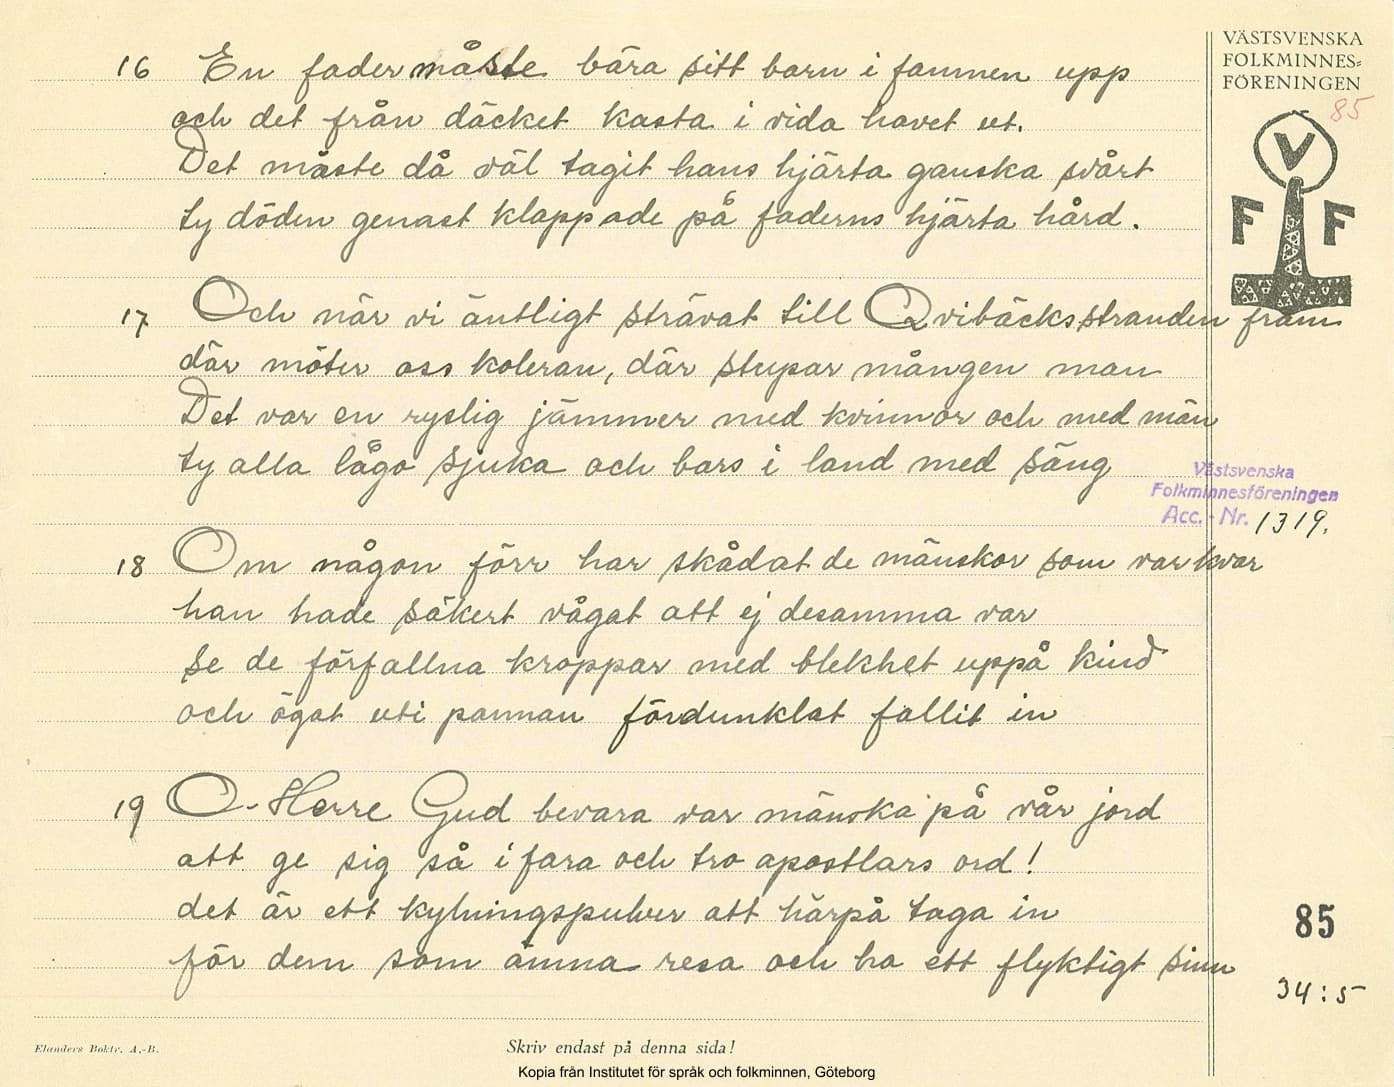 VÄSTSVENSKA
FOLKMINNES=
FÖRENINGEN
85
V
F F
16 En fader måste bära sitt barn i famnen upp
och det från däcket kasta i vida havet ut.
Det måste då väl tagit hans hjärta ganska svårt
ty döden genast klappade på faderns hjärta hård.
17 Och när vi äntligt strävat till Qvibäcksstranden fram
där möter oss koleran, där stupar mången man
Det var en ryslig jämmer med kvinnor och med män
ty alla lågo sjuka och bars i land med säng
Västsvenska
Folkminnesföreningen
Acc. - Nr. 1319.
18 Om någon förr har skådat de mänskor som var kvar
han hade säkert vågat att ej desamma var
se de förfallna kroppar med blekhet uppå kind
och ögat uti pannan fördunklat fallit in
19 O - Herre Gud bevara var mänska på vår jord
att ge sig så i fara och tro apostlars ord!
det är ett kylningspulver att härpå taga in
för dem som ämna resa och ha ett flyktigt sinn
85
34:5
Elanders Boktr. A.-B.
Skriv endast på denna sida!
Kopia från Institutet för språk och folkminnen, Göteborg